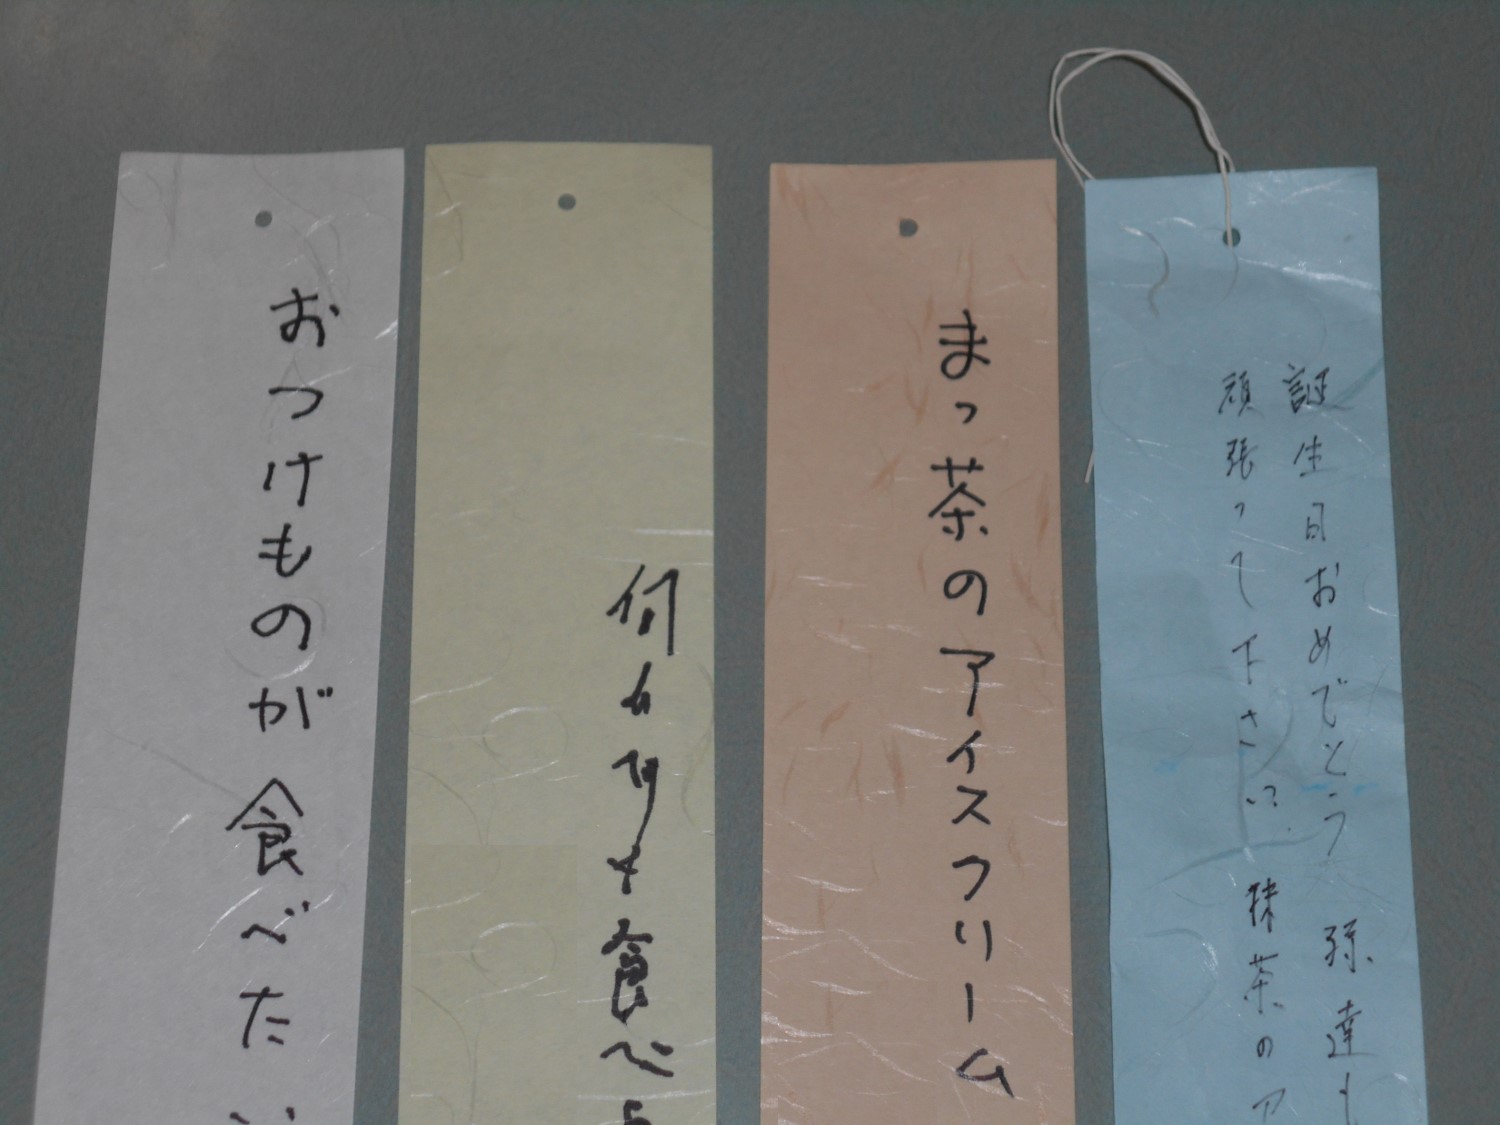 誕生日おめでとう 孫達も
頑張って下さい。抹茶のア
まっ茶のアイスクリーム
何 も食べ
おつけものが食べたい